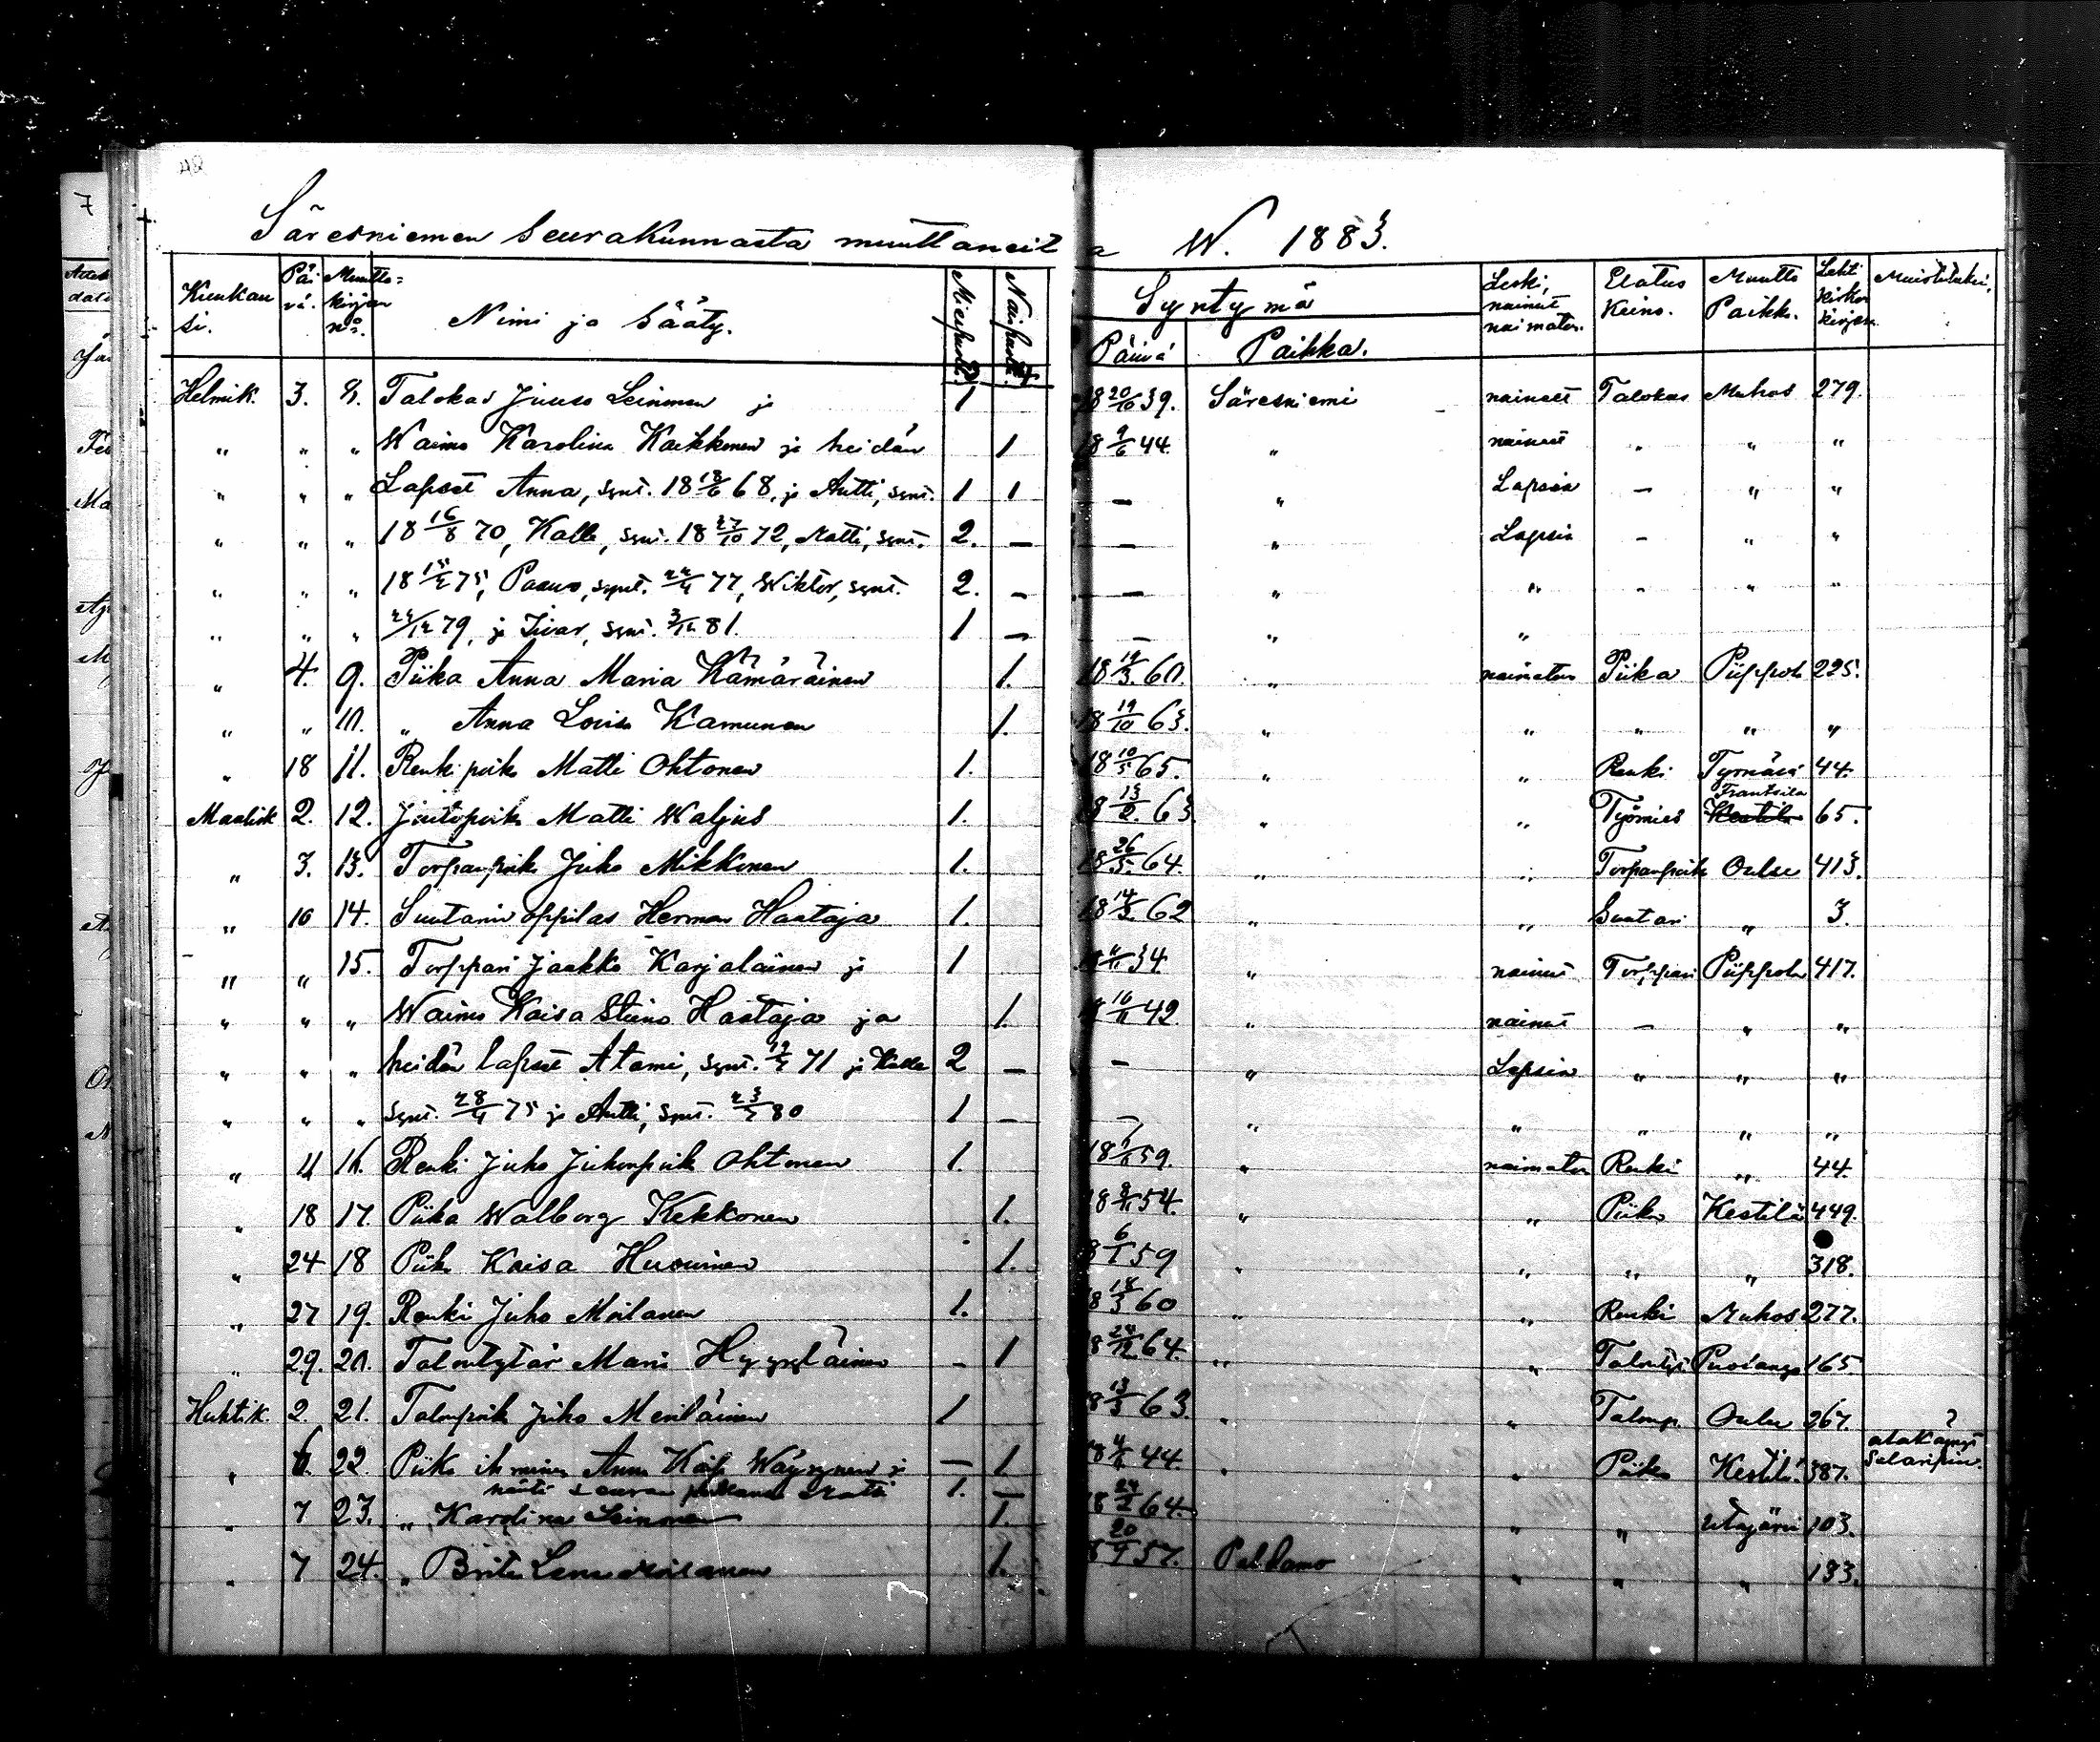 Säresniemen Seurakunnasta muuttaneita W. 1883.
Kuukausi. Päivä. Muuttokirjan no. Nimi ja Sääty. Miespuol. Naispuol. Syntymä Päivä Paikka. Leski, nainut naimaton. Elatus Keino. Muutto Paikka. Lehti kirkon kirjassa Muistutuksia.
Helmik. 3. 8. Talokas Juuso Leinonen ja 1 18 20/10 39. Säresniemi nainut Talokas Muhos 279.
" " " Waimo Karolina Kaikkonen ja heidän 1 18 9/6 44. " nainut " " "
" " " Lapset Anna, synt. 18 18/6 68, ja Antti, synt. 1 1 — " Lapsia — " "
" " " 18 16/8 70, Kalle, synt. 18 27/10 72, Matti, synt. 2. — — " Lapsia — " "
" " " 18 15/2 75, Paavo, synt. 22/4 77, Wiktor, synt. 2. — — " " " " "
" " " 24/12 79, ja Iivar, synt. 3/12 81. 1 — — " "
" 4. 9. Piika Anna Maria Kämäräinen 1. 18 19/3 60. " naimaton Piika Piippola 225.
" " 10. " Anna Lovisa Kamunen 1. 18 19/10 63. " " " " "
" 18 11. Renki poika Matti Ohtonen 1. 18 10/5 65. " " Renki Tyrnävä 44.
Maalisk 2. 12. Matti Waljus 1. 18 13/2. 63 " " Työmies Frantsila Kestilä 65.
" 3. 13. Torpanpoika Juho Mikkonen 1. 18 26/5. 64. " " Torpanpoika Oulu 413.
" 10 14. Suutarin oppilas Herman Haataja 1. 18 14/3. 62 " " Suutari " 3.
" " 15. Torppari Jaakko Karjalainen ja 1 34 " nainut Torppari Piippola 417.
" " " Waimo Kaisa Stiina Haataja ja 1. 16/11 42. " nainut — " "
" " " heidän lapset Atami, synt. 19/2 71 ja Kalle 2 — — " Lapsia " " "
" " " synt. 28/4 75 ja Antti, synt. 23/7 80 1 — — " " " " "
" 4 16. Renki Juho Juhonpoik Ohtonen 1. 59. " naimaton Renki " 44.
" 18 17. Piika Walborg Kekkonen 1. 18 8/11 54. " " Piika Kestilä 449.
" 24 18 Piika Kaisa Huovinen 1. 18 6/1 59 " " " " 318.
" 27 19. Renki Juho Moilanen 1. 18 18/3 60 " " Renki Muhos 277.
" 29. 20. Talontytär Maria Hyyryläinen — 1 18 24/12 64. " " Talontyt Puolanga 165
Huhtik. 2. 21. Talonpoik Juho Meriläinen 1 18 13/3 63. " " Talonp. Oulu 267.
" 6. 22. Piika ihminen Anna Kaisa Wäyrynen ja — 1 44. " " Piika Kestilä. 387.
seuraa Matti 1. —
" 7 23. " Karolina Leinonen 1. 18 24/2 64. " " Utajärvi 103.
" 7 24. " Brita Lena Moilanen 1. 18 20/9 57. Paldamo " " " 133.